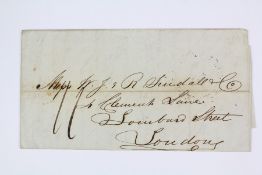 Messrs W. J. & R. Tindall & Co
4 Clement Lane
Lombard Street
London